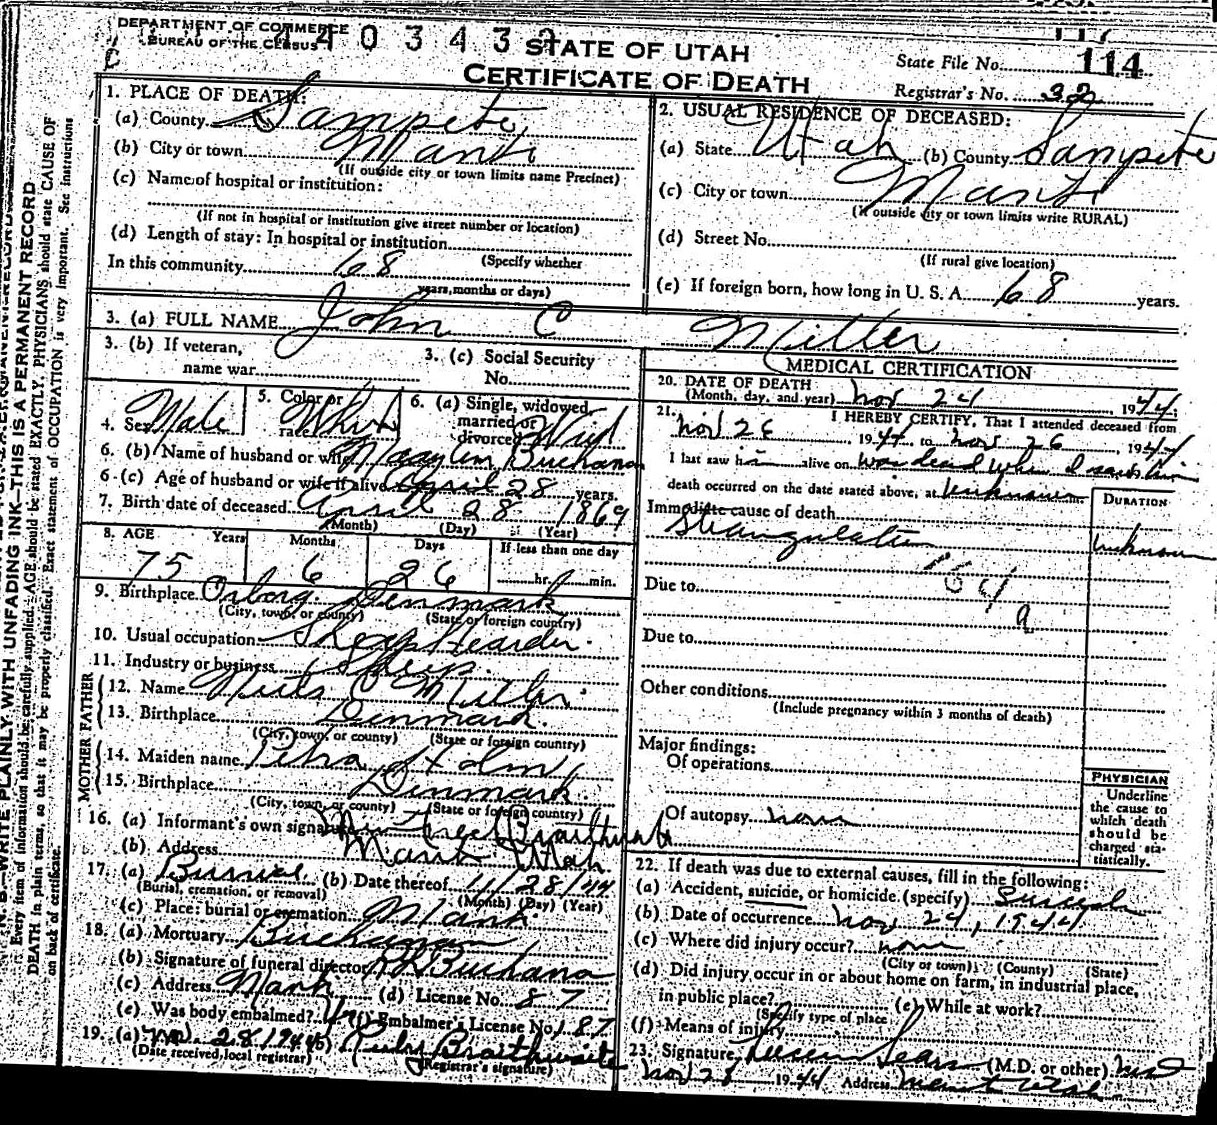 DEPARTMENT OF COMMERCE
BUREAU OF THE CENSUS
STATE OF UTAH
CERTIFICATE OF DEATH
State File No. 114
Registrar's No. 32
1. PLACE OF DEATH:
(a) County Sanpete
(b) City or town Manti
(If outside city or town limits name Precinct)
(c) Name of hospital or institution:
(If not in hospital or institution give street number or location)
(d) Length of stay: In hospital or institution
(Specify whether
In this community 68
years, months or days)
2. USUAL RESIDENCE OF DECEASED:
(a) State Utah (b) County Sanpete
(c) City or town Manti
(If outside city or town limits write RURAL)
(d) Street No.
(If rural give location)
(e) If foreign born, how long in U. S. A. 68 years.
3. (a) FULL NAME John C Miller
3. (b) If veteran,
name war
3. (c) Social Security
No.
4. Sex Male
5. Color or
race White
6. (a) Single, widowed,
married or
divorced Wid
6. (b) Name of husband or wife Buchanan
6 (c) Age of husband or wife if alive April 28 years.
7. Birth date of deceased April 28 1869
(Month) (Day) (Year)
8. AGE Years Months Days If less than one day
75 6 26 hr. min.
9. Birthplace Denmark
(City, town, or county) (State or foreign country)
10. Usual occupation Sheep Hearder
11. Industry or business Sheep
FATHER
12. Name Niels C Miller
13. Birthplace Denmark
(City, town, or county) (State or foreign country)
MOTHER
14. Maiden name Petra
15. Birthplace Denmark
(City, town, or county) (State or foreign country)
16. (a) Informant's own signature Braithwaite
(b) Address Manti Utah
17. (a) Burial (b) Date thereof 11/28/44
(Burial, cremation, or removal) (Month) (Day) (Year)
(c) Place: burial or cremation Manti
18. (a) Mortuary Buchanan
(b) Signature of funeral director Buchanan
(c) Address Manti (d) License No. 87
(e) Was body embalmed? (f) Embalmer's License No. 187
19. (a) Nov. 28 1944 (b) Ruby Braithwaite
(Date received local registrar) (Registrar's signature)
MEDICAL CERTIFICATION
20. DATE OF DEATH
(Month, day, and year) Nov 24 1944
21. I HEREBY CERTIFY, That I attended deceased from
Nov 26 1944 to Nov 26 1944
I last saw him alive on was dead when I saw him
death occurred on the date stated above, at Unknown
DURATION
Immediate cause of death
Strangulation Unknown
164
a
Due to
Due to
Other conditions
(Include pregnancy within 3 months of death)
Major findings:
Of operations
Of autopsy none
PHYSICIAN
Underline
the cause to
which death
should be
charged sta-
tistically.
22. If death was due to external causes, fill in the following:
(a) Accident, suicide, or homicide (specify) Suicide
(b) Date of occurrence Nov 24, 1944
(c) Where did injury occur? home
(City or town) (County) (State)
(d) Did injury occur in or about home on farm, in industrial place,
in public place? (e) While at work?
(Specify type of place
(f) Means of injury
23. Signature Sears (M.D. or other) MD
Nov 28 1944 Address Manti Utah
N. B.—WRITE PLAINLY WITH UNFADING INK—THIS IS A PERMANENT RECORD
Every item of information should be carefully supplied. AGE should be stated EXACTLY. PHYSICIANS should state CAUSE OF
DEATH in plain terms, so that it may be properly classified. Exact statement of OCCUPATION is very important. See instructions
on back of certificate.